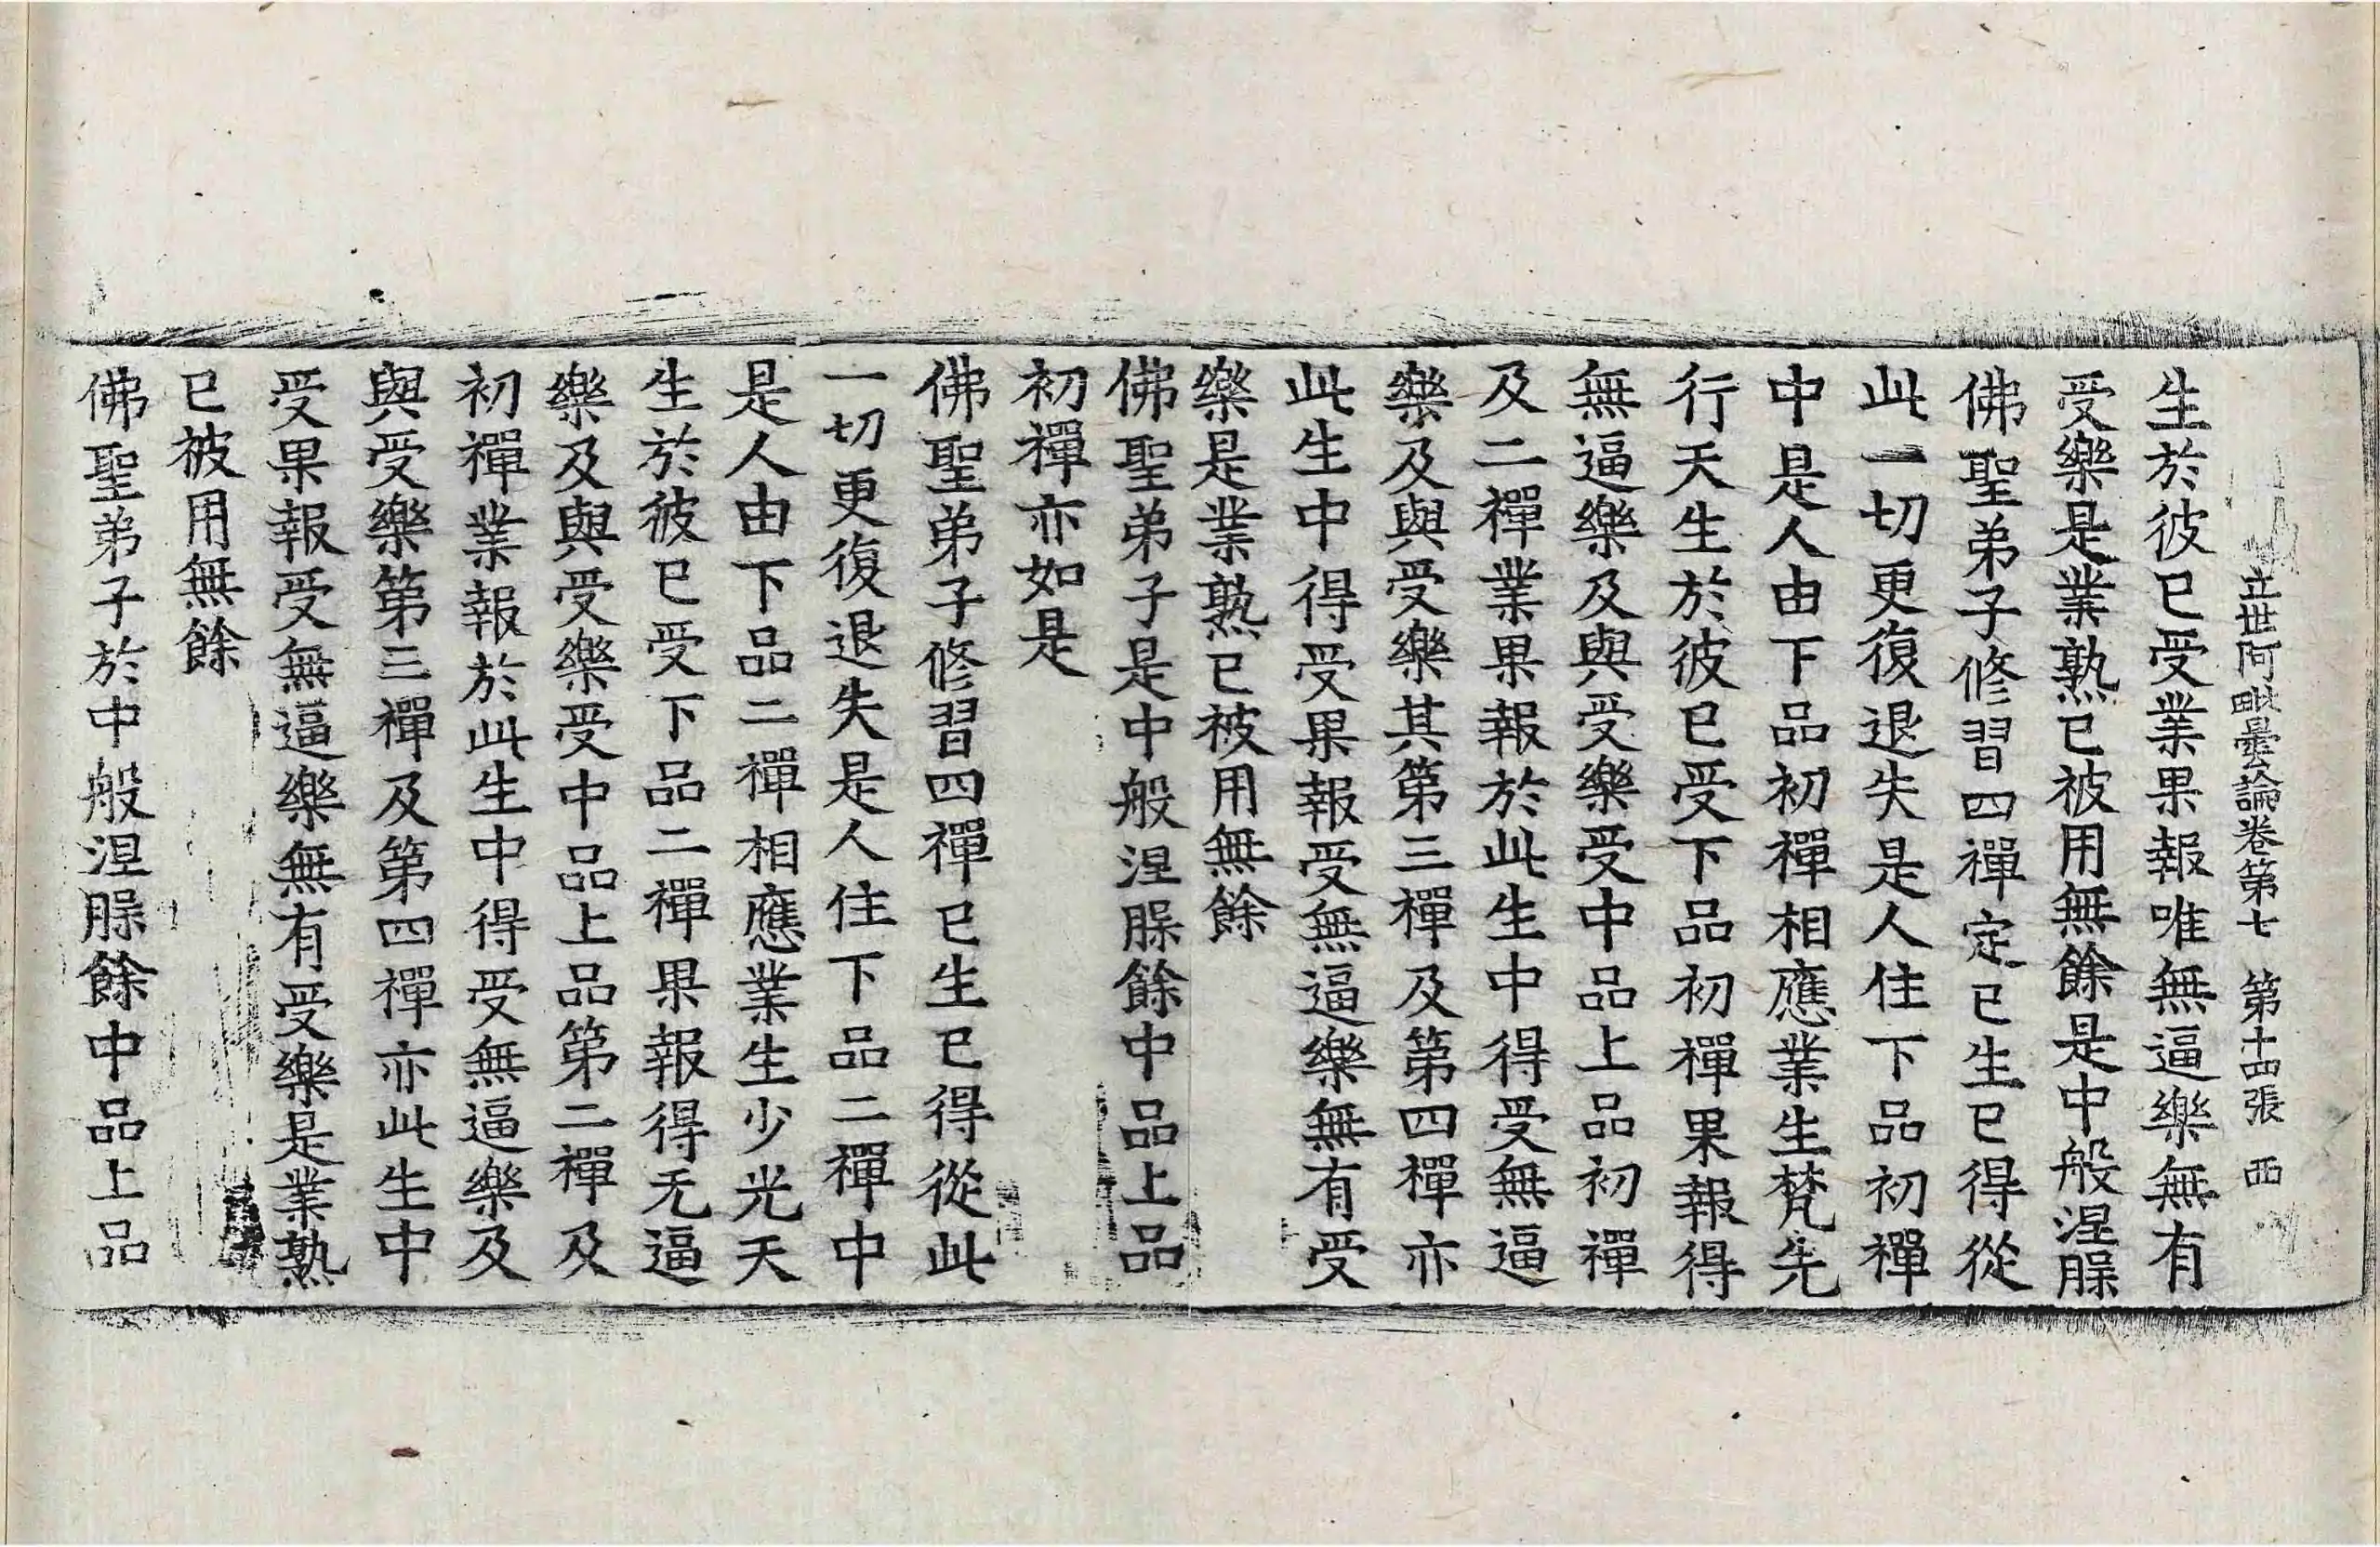 立世阿毗曇論卷第七 第十四張 西
生於彼已受業果報唯無逼樂無有
受樂是業熟已被用無餘是中般涅脲
佛聖弟子修習四禪定已生已得從
此一切更復退失是人住下品初禪
中是人由下品初禪相應業生梵先
行天生於彼已受下品初禪果報得
無逼樂及與受樂受中品上品初禪
及二禪業果報於此生中得受無逼
樂及與受樂其第三禪及第四禪亦
此生中得受果報受無逼樂無有受
樂是業熟已被用無餘
佛聖弟子是中般涅脲餘中品上品
初禪亦如是
佛聖弟子修習四禪已生已得從此
一切更復退失是人住下品二禪中
是人由下品二禪相應業生少光天
生於彼已受下品二禪果報得无逼
樂及與受樂受中品上品第二禪及
初禪業報於此生中得受無逼樂及
與受樂第三禪及第四禪亦此生中
受果報受無逼樂無有受樂是業熟
已被用無餘
佛聖弟子於中般涅脲餘中品上品